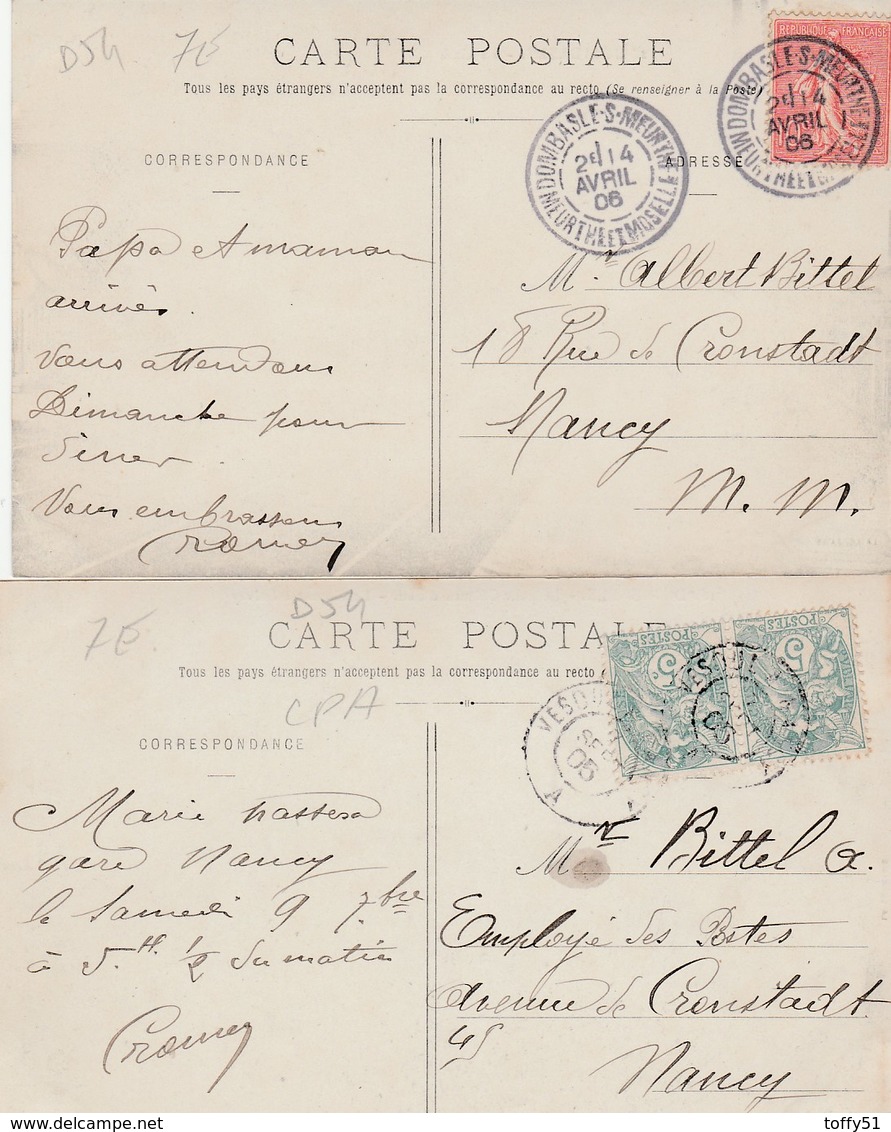 D54 7E
CARTE POSTALE
Tous les pays étrangers n'acceptent pas la correspondance au recto (Se renseigner à la Poste)
RÉPUBLIQUE FRANÇAISE
DOMBASLE-S-MEURTHE
2E 14
AVRIL
06
MEURTHE ET MOSELLE
DOMBASLE-S-MEURTHE
2E 14
AVRIL
06
MEURTHE ET MOSELLE
CORRESPONDANCE
ADRESSE
Papa et maman
arrivés.
Vous attendons
Dimanche pour
diner.
Vous embrassons
Mr Albert Bittel
18 Rue de Cronstadt
Nancy
M. M.
7E D54
CARTE POSTALE
Tous les pays étrangers n'acceptent pas la correspondance au recto (
CPA
POSTES
5c
POSTES
5c
VESOUL
05
A
VESOUL
05
CORRESPONDANCE
Marie passera
gare Nancy
le Samedi 9 7.bre
à 5.H 1/2 du matin
Mr Bittel A.
Employé des Postes
Avenue de Cronstadt
Nancy
toffy51